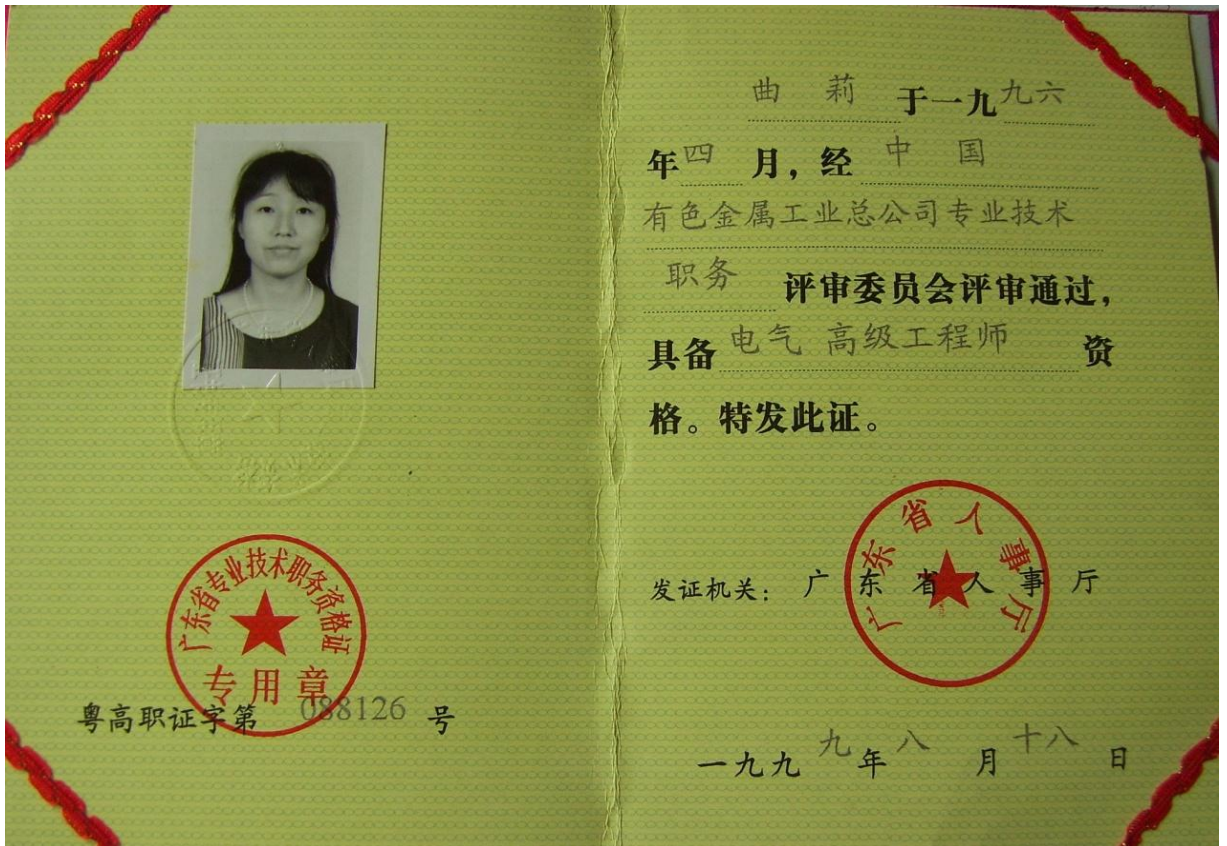 广东省专业技术职务资格证
专用章
粤高职证字第 088126 号
曲 莉 于一九九六
年四月，经 中 国
有色金属工业总公司专业技术
职务 评审委员会评审通过，
具备 电气 高级工程师 资
格。特发此证。
广东省人事厅
发证机关：广东省人事厅
一九九九年八月十八日